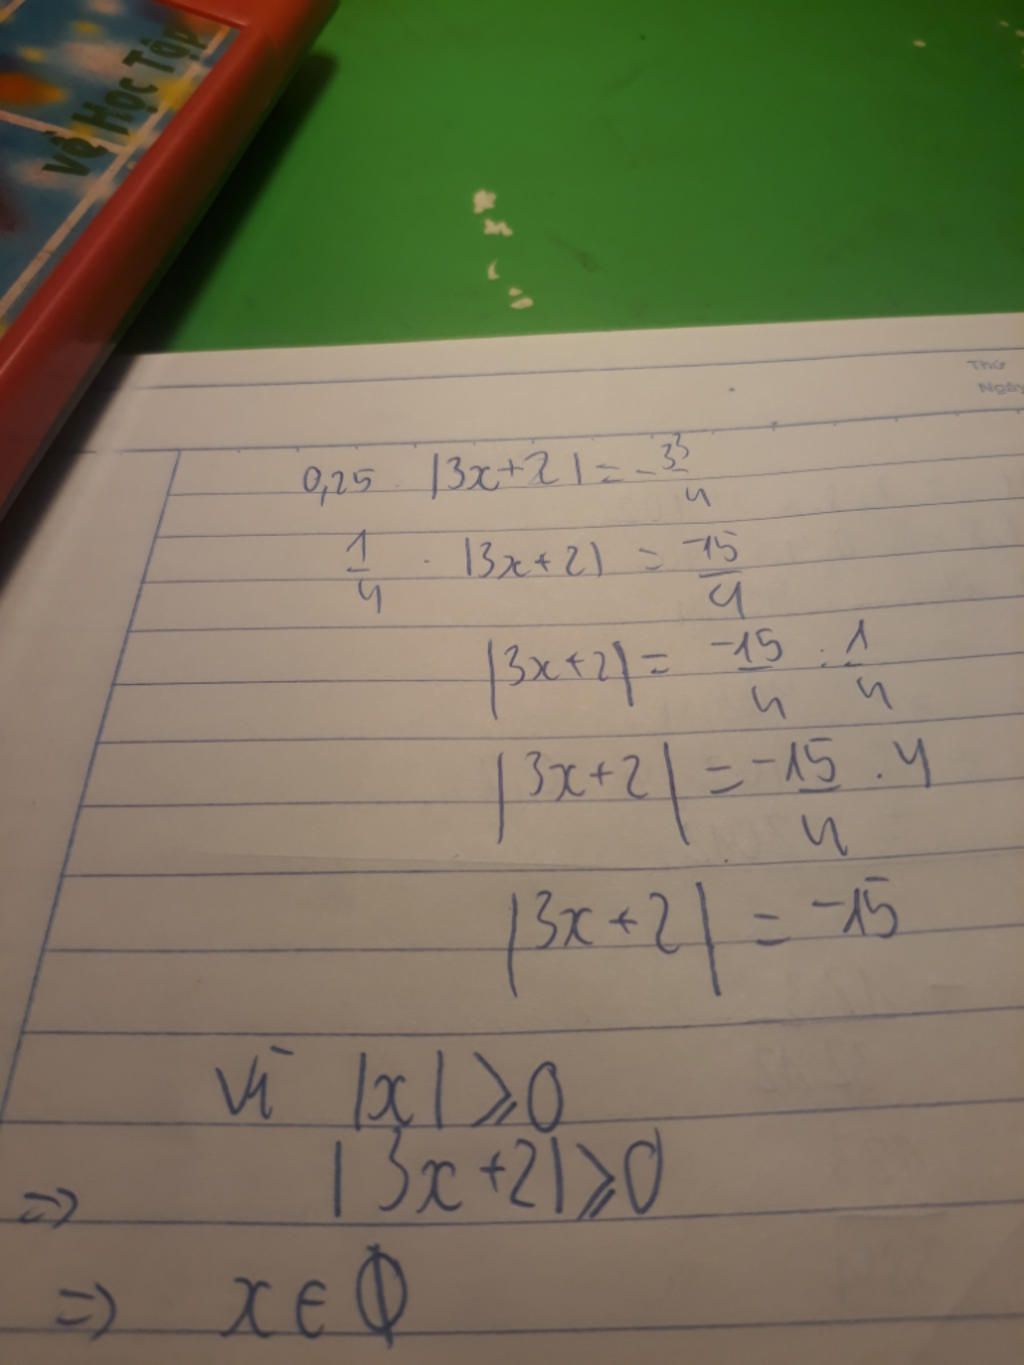 Vở Học Tập
Thứ
Ngày
0,25 . |3x+2| = -3 3/4
1/4 . |3x+2| = -15/4
|3x+2| = -15/4 : 1/4
|3x+2| = -15/4 . 4
|3x+2| = -15
Vì |x| ⩾ 0
=> |3x+2| ⩾ 0
=> x ∈ ∅